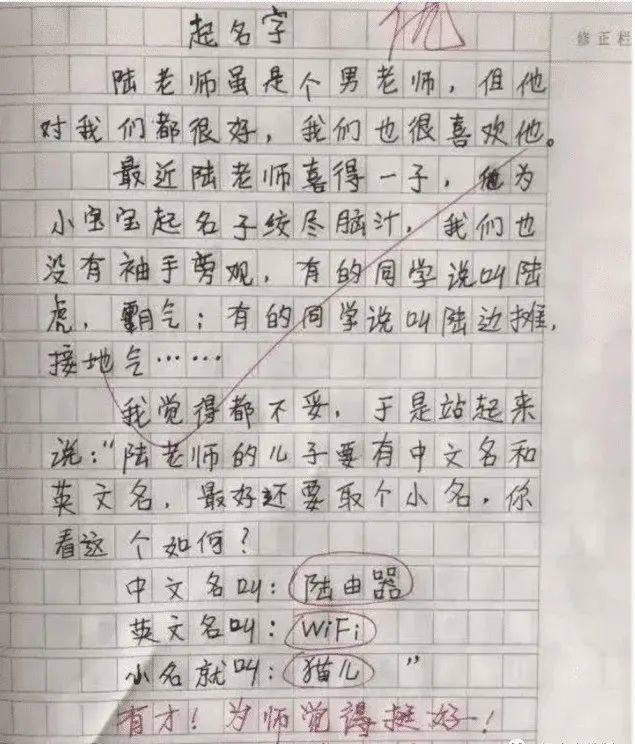 起名字
优
修正栏
陆老师虽是个男老师，但他
对我们都很好，我们也很喜欢他。
最近陆老师喜得一子，他为
小宝宝起名子绞尽脑汁，我们也
没有袖手旁观，有的同学说叫陆
虎，霸气；有的同学说叫陆边摊，
接地气……
我觉得都不妥，于是站起来
说：“陆老师的儿子要有中文名和
英文名，最好还要取个小名，你
看这个如何？
中文名叫：陆由器
英文名叫：WiFi
小名就叫：猫儿”
有才！为师觉得挺好！